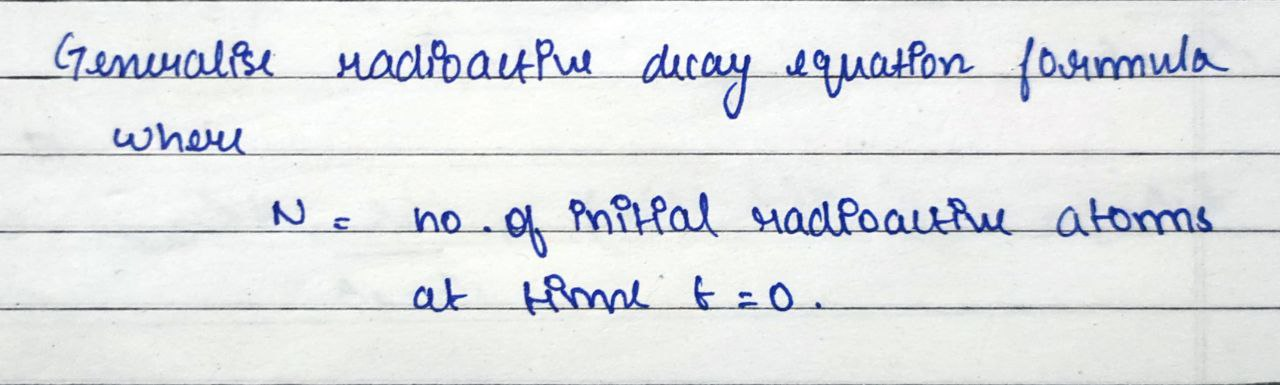 Generalise radioactive decay equation formula
where
N = no. of initial radioactive atoms
at time t = 0.